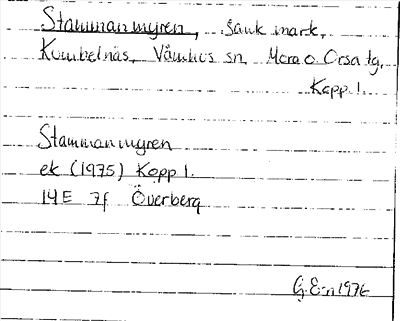 Stammanmyren, sank mark,
Kumbelnäs, Våmhus sn, Mora o. Orsa tg,
Kopp. l.
Stammanmyren
ek (1975) Kopp l.
14E 7f Överberg
G. E-n 1976